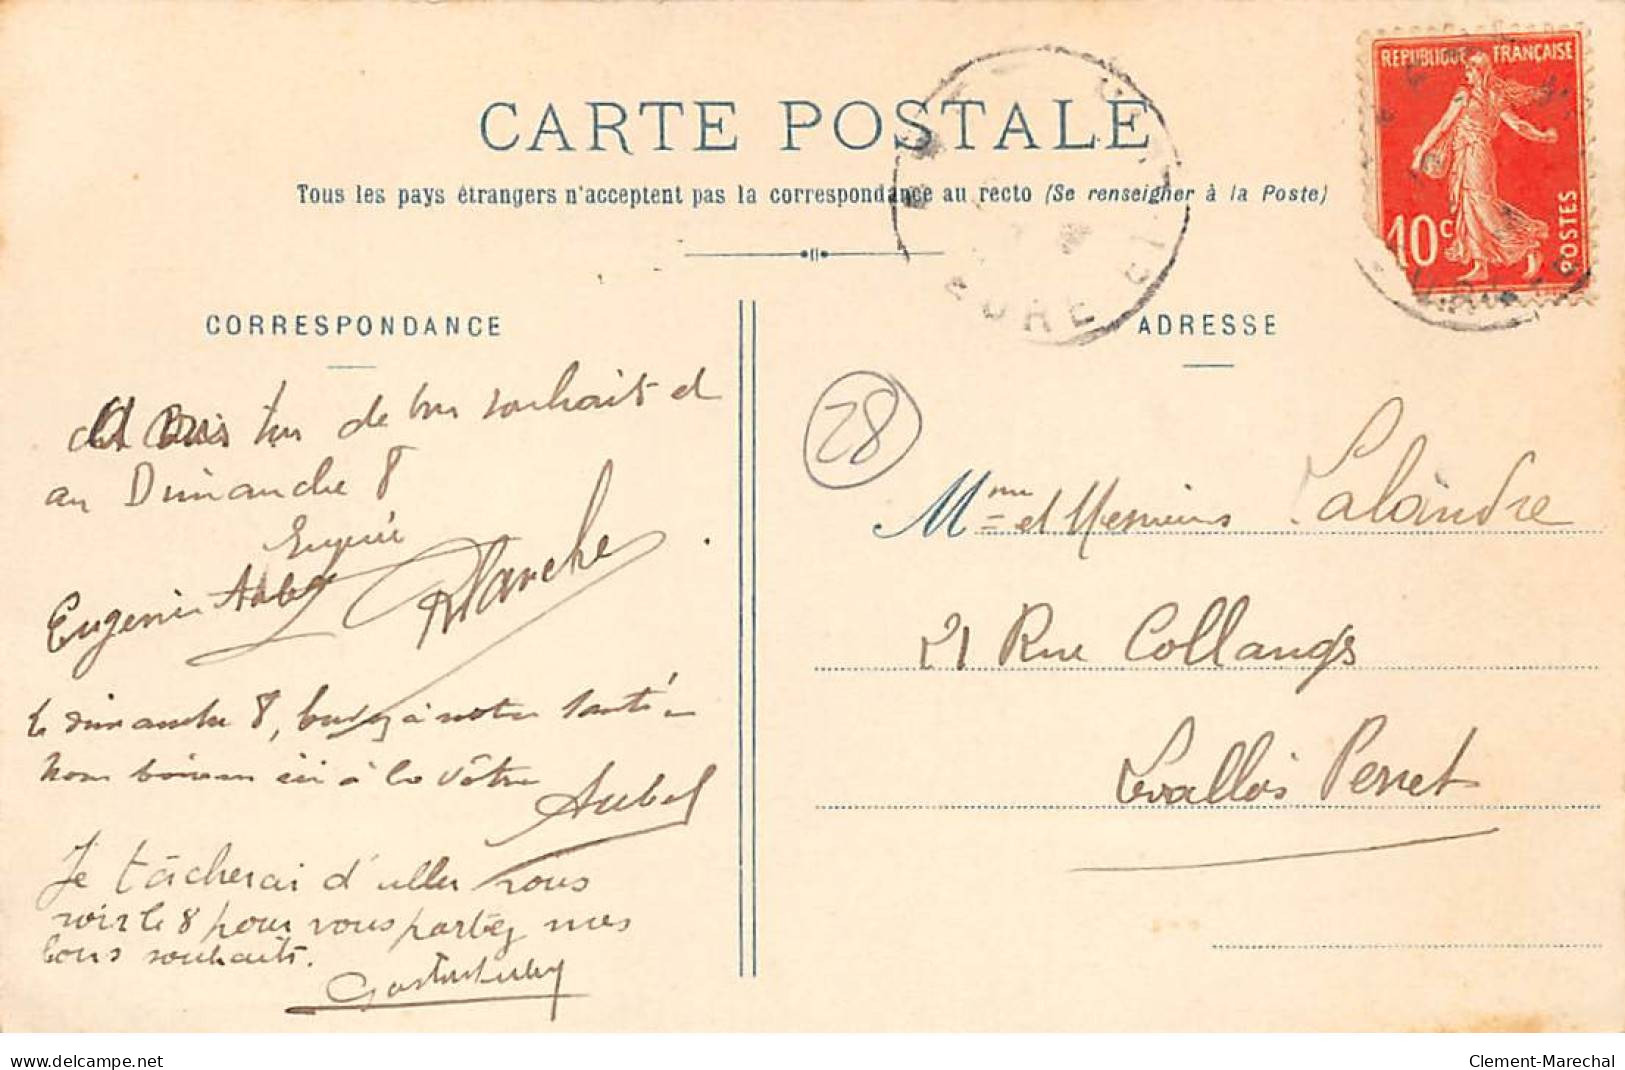 CARTE POSTALE
Tous les pays étrangers n'acceptent pas la correspondance au recto (Se renseigner à la Poste)
REPUBLIQUE FRANÇAISE
10c
POSTES
EURE ET
CORRESPONDANCE
de bon souhait et
au Dimanche 8
Eugénie
Eugenie
Blanche
le dimanche 8, buvez à notre santé
nous boirons ici à la vôtre
Aubel
Je tâcherai d'aller vous
voir le 8 pour vous partez mes
bons souhaits.
ADRESSE
28
Mme et Messieurs Lalandre
21 Rue Collange
Levallois Perret
www.delcampe.net
Clement-Marechal